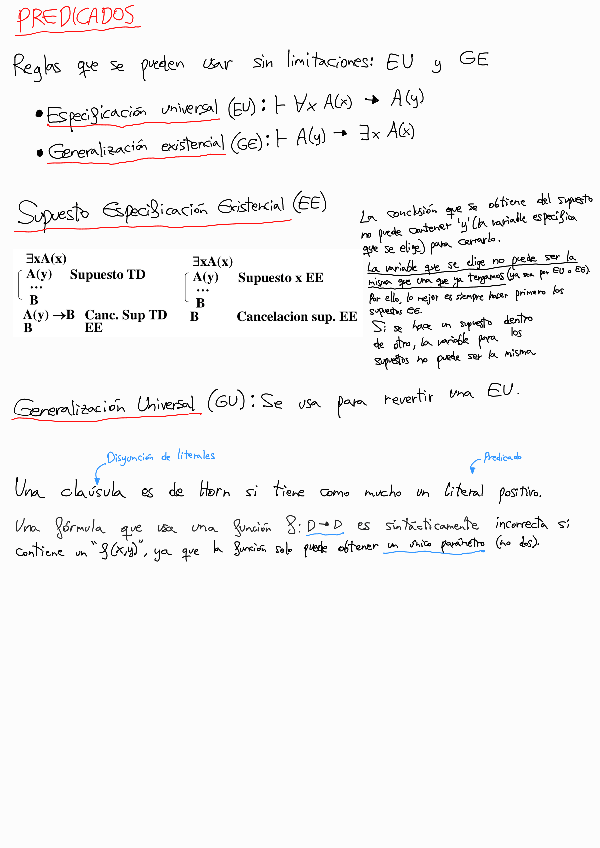 PREDICADOS
Reglas que se pueden usar sin limitaciones: EU y GE
• Especificación universal (EU): ⊢ ∀x A(x) → A(y)
• Generalización existencial (GE): ⊢ A(y) → ∃x A(x)
Supuesto Especificación Existencial (EE)
∃xA(x)
A(y) Supuesto TD
...
B
A(y) →B Canc. Sup TD
B EE
∃xA(x)
A(y) Supuesto x EE
...
B
B Cancelacion sup. EE
La conclusión que se obtiene del supuesto
no puede contener 'y' (la variable específica
que se elige) para cerrarlo.
La variable que se elige no puede ser la
misma que una que ya tengamos (ya sea por EU o EE).
Por ello, lo mejor es siempre hacer primero los
supuestos EE.
Si se hace un supuesto dentro
de otro, la variable para los
supuestos no puede ser la misma
Generalización Universal (GU): Se usa para revertir una EU.
Disyunción de literales
Predicado
Una claúsula es de Horn si tiene como mucho un literal positivo.
Una fórmula que usa una función f: D→D es sintácticamente incorrecta si
contiene un "f(x,y)", ya que la función solo puede obtener un único parámetro (no dos).